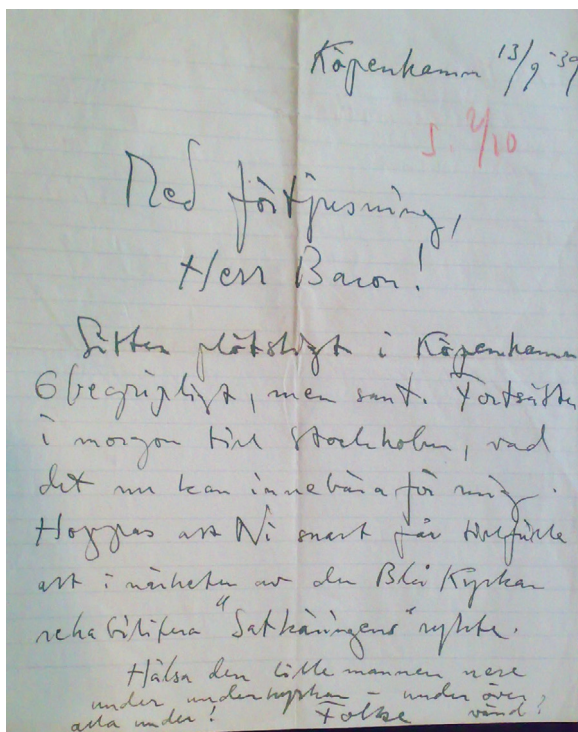 Köpenhamn 13/9 -39
S. 2/10
Med förtjusning,
Herr Baron!
Sitter plötsligt i Köpenhamn
Obegripligt, men sant. Fortsätter
i morgon till Stockholm, vad
det nu kan innebära för mig.
Hoppas att Ni snart får tillfälle
att i närheten av den Blå Kyrkan
rehabilitera "Satkäringens" rykte.
Hälsa den lille mannen nere
under underkyrkan - under över
alla under! Folke vänd?